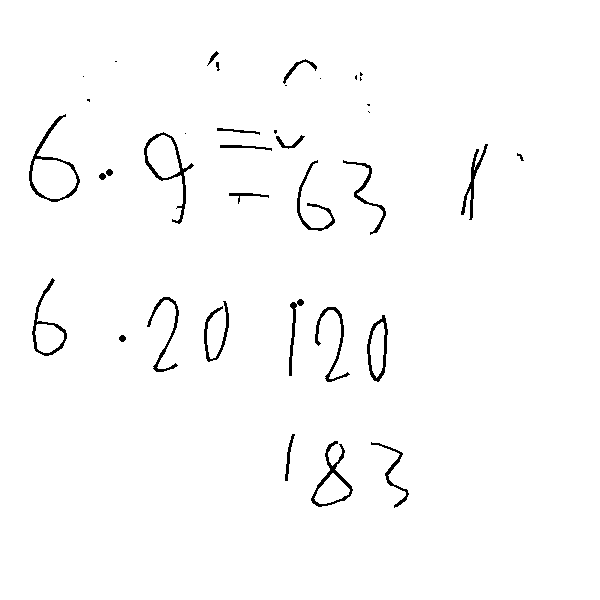 6 · 9 = 63
6 · 20 120
183